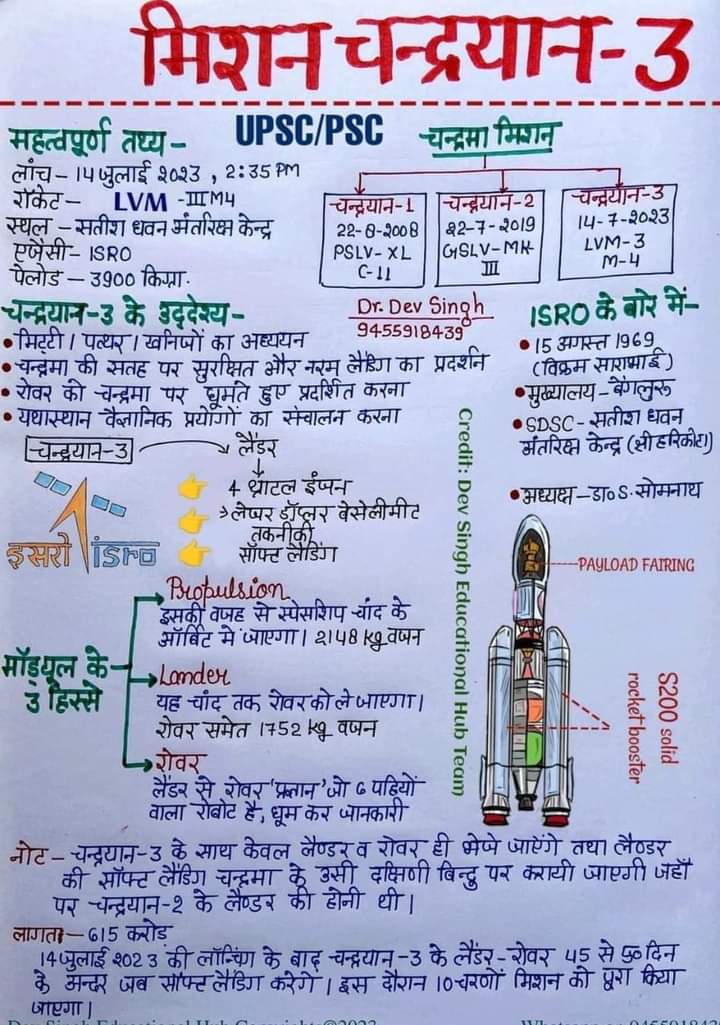 मिशन चन्द्रयान-3
महत्वपूर्ण तथ्य-
UPSC/PSC
लांच - 14 जुलाई 2023, 2:35 PM
रॉकेट - LVM -III M4
स्थल - सतीश धवन अंतरिक्ष केन्द्र
एजेंसी - ISRO
पेलोड - 3900 किग्रा.
चन्द्रमा मिशन
चन्द्रयान-1
22-8-2008
PSLV-XL
C-11
चन्द्रयान-2
22-7-2019
GSLV-MK
III
चन्द्रयान-3
14-7-2023
LVM-3
M-4
चन्द्रयान-3 के उद्देश्य-
• मिट्टी। पत्थर। खनिजों का अध्ययन
• चन्द्रमा की सतह पर सुरक्षित और नरम लैंडिंग का प्रदर्शन
• रोवर को चन्द्रमा पर घूमते हुए प्रदर्शित करना
• यथास्थान वैज्ञानिक प्रयोगों का संचालन करना
Dr. Dev Singh
9455918439
ISRO के बारे में-
• 15 अगस्त 1969
(विक्रम साराभाई)
• मुख्यालय - बेंगलुरू
• SDSC - सतीश धवन
अंतरिक्ष केन्द्र (श्रीहरिकोटा)
• अध्यक्ष - डा० S. सोमनाथ
चन्द्रयान-3
लैंडर
4 थ्रॉटल इंजन
लेजर डॉप्लर वेसेलीमीट
तकनीकी
सॉफ्ट लैंडिंग
इसरो isro
Credit: Dev Singh Educational Hub Team
PAYLOAD FAIRING
S200 solid
rocket booster
मॉड्यूल के
3 हिस्से
Propulsion
इसकी वजह से स्पेसशिप चांद के
ऑर्बिट में जाएगा। 2148 kg वजन
Lander
यह चांद तक रोवर को ले जाएगा।
रोवर समेत 1752 kg वजन
रोवर
लैंडर से रोवर 'प्रज्ञान' जो 6 पहियों
वाला रोबोट है, घूम कर जानकारी
नोट - चन्द्रयान-3 के साथ केवल लैण्डर व रोवर ही भेजे जाऐंगे तथा लैण्डर
की सॉफ्ट लैंडिंग चन्द्रमा के उसी दक्षिणी बिन्दु पर करायी जाएगी जहाँ
पर चन्द्रयान-2 के लैण्डर की होनी थी।
लागत - 615 करोड़
14 जुलाई 2023 की लॉन्चिंग के बाद चन्द्रयान-3 के लैंडर-रोवर 45 से 50 दिन
के अन्दर जब सॉफ्ट लैंडिंग करेंगे। इस दौरान 10 चरणों मिशन को पूरा किया
जाएगा।